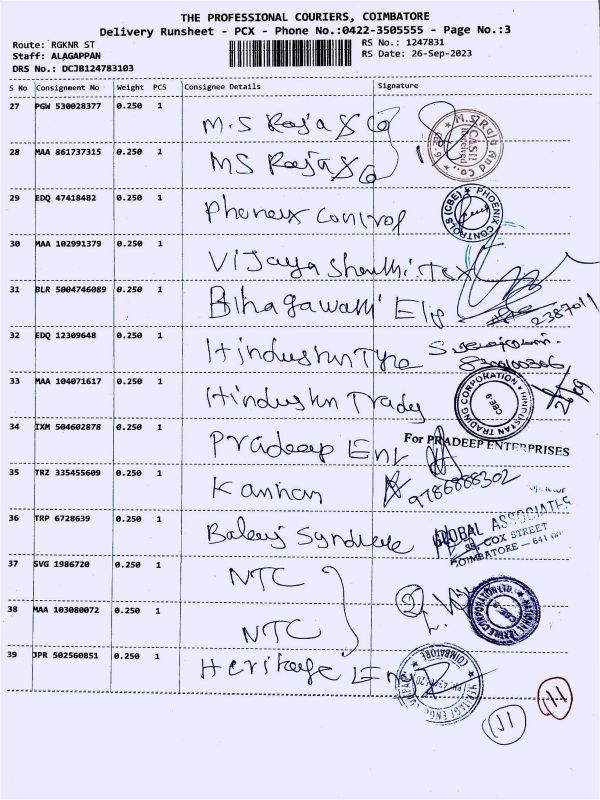 THE PROFESSIONAL COURIERS, COIMBATORE
Delivery Runsheet - PCX - Phone No.:0422-3505555 - Page No.:3
Route: RGKNR ST
RS No.: 1247831
Staff: ALAGAPPAN
RS Date: 26-Sep-2023
DRS No.: DCJB124783103
S No Consignment No Weight PCS Consignee Details Signature
27 PGW 530028377 0.250 1
M.S Raja & Co
M.S. Raja And Co., CASH Received CBE.9
28 MAA 861737315 0.250 1
MS Raja & Co
29 EDQ 47418482 0.250 1
Phoneix Control
PHOENIX CONTROLS (CBE)
30 MAA 102991379 0.250 1
Vijaya Shanthi Tex
31 BLR 5004746089 0.250 1
Bhagawathi Elie
2387011
32 EDQ 12309648 0.250 1
Hindustn Tyre
33 MAA 104071617 0.250 1
Hindustn Tradg
HINDUSTAN TRADING CORPORATION CBE-9
34 IXM 504602878 0.250 1
Pradeep Ent
For PRADEEP ENTERPRISES
35 TRZ 335455609 0.250 1
Kannan
9786888302
36 TRP 6728639 0.250 1
Balaji Syndicate
GLOBAL ASSOCIATES
COX STREET
COIMBATORE — 641
37 SVG 1986720 0.250 1
NTC
38 MAA 103080072 0.250 1
NTC
NATIONAL TEXTILE CORPORATION LTD. CBE-9
39 JPR 502560851 0.250 1
Heritage Eng
HERITAGE ENGG COIMBATORE
11
11